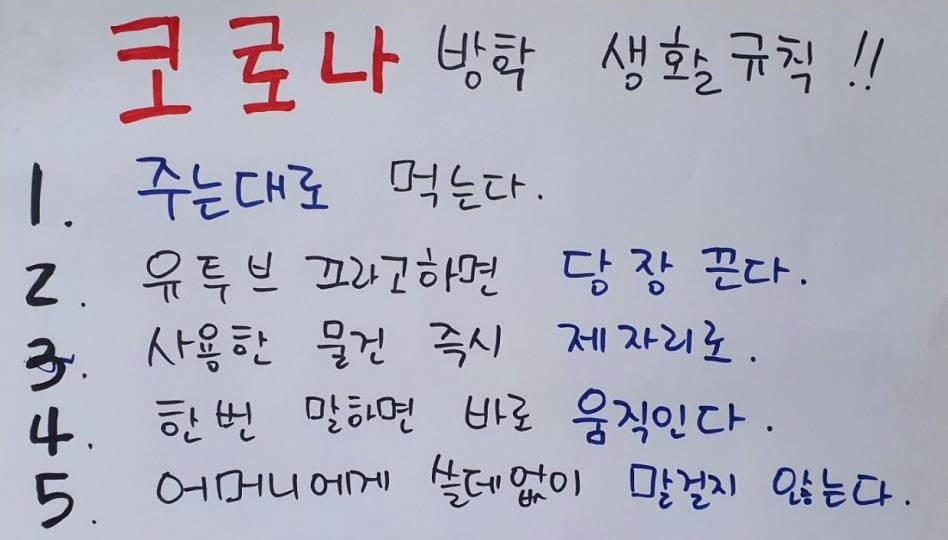 코로나 방학 생활규칙 !!
1. 주는대로 먹는다.
2. 유투브 끄라고하면 당장 끈다.
3. 사용한 물건 즉시 제자리로.
4. 한번 말하면 바로 움직인다.
5. 어머니에게 쓸데없이 말걸지 않는다.